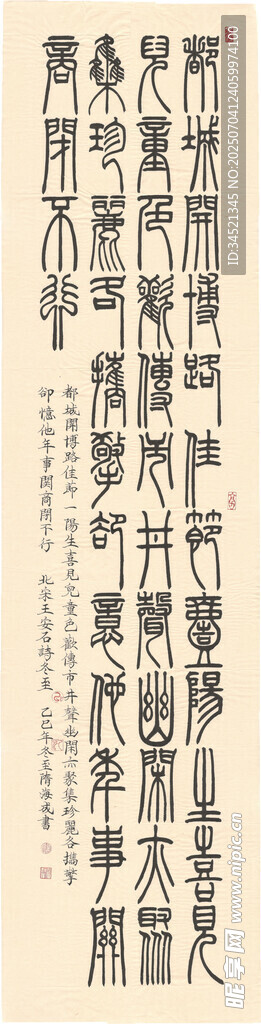 都城開博路佳節壹陽生喜見
兒童色歡傳市井聲幽閑亦聚
集珍麗各攜擎卻意他年事關
商閉不行
都城開博路佳節一陽生喜見兒童色歡傳市井聲幽閑亦聚集珍麗各攜擎
卻憶他年事関商閉不行 北宋王安石詩冬至 乙巳年冬至隋海成書
ID:34521345 NO:20250704124059974100
昵享网 www.nipic.cn